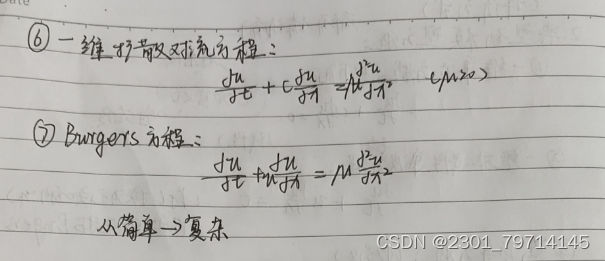 ⑥ 一维扩散对流方程:
∂u/∂t + c ∂u/∂x = μ ∂²u/∂x² (μ≥0)
⑦ Burgers方程:
∂u/∂t + u ∂u/∂x = μ ∂²u/∂x²
从简单→复杂
CSDN @2301_79714145